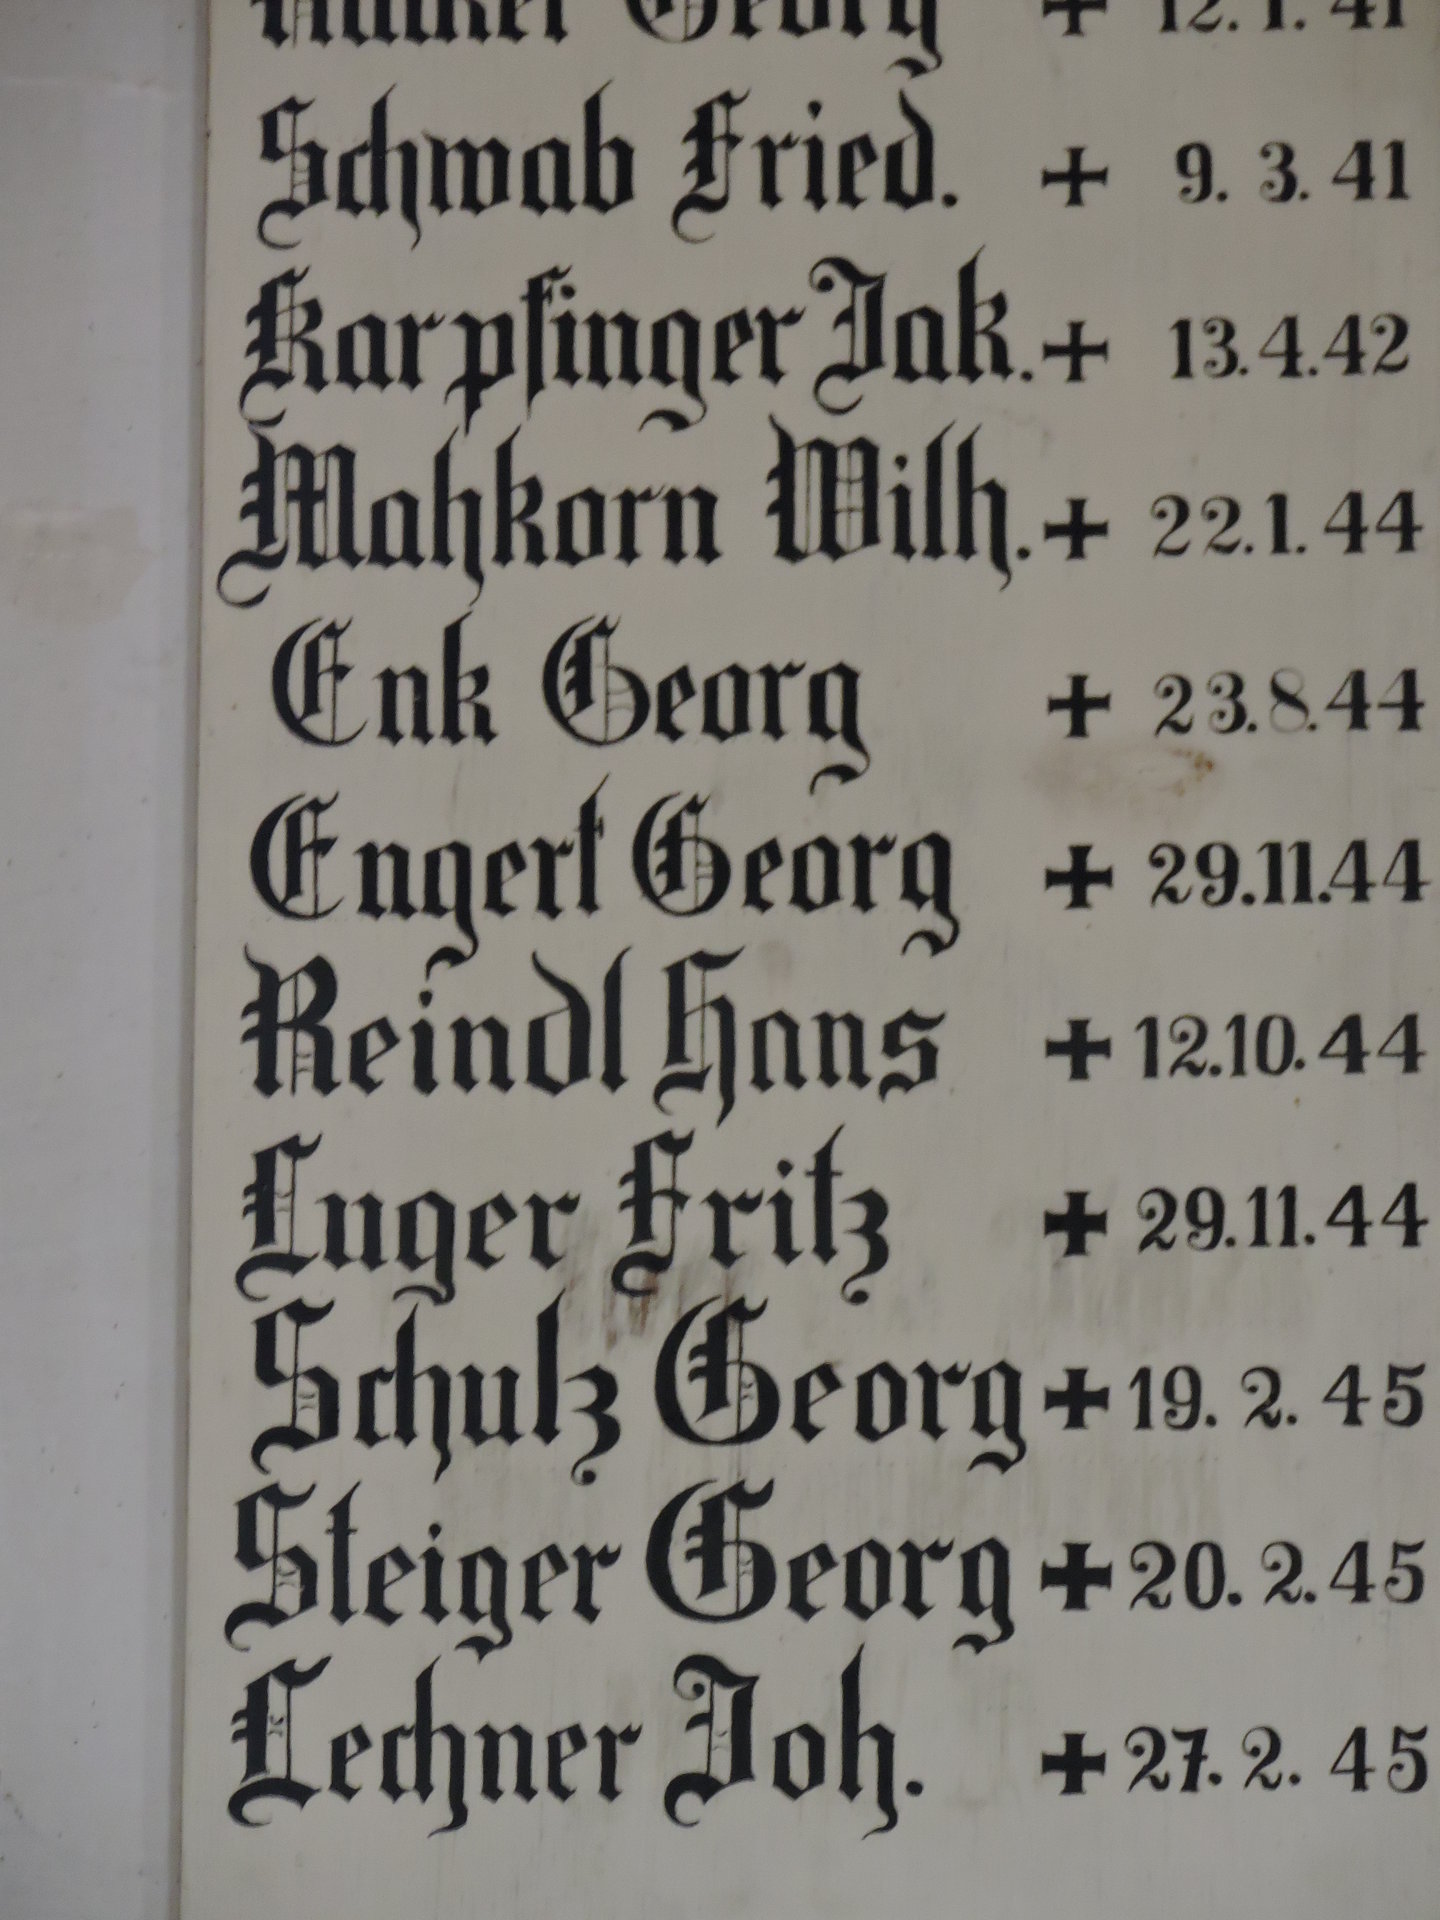 Georg + 12. 1. 41
Schwab Fried. + 9. 3. 41
Karpfinger Jak. + 13.4.42
Mahkorn Wilh. + 22.1.44
Enk Georg + 23.8.44
Engert Georg + 29.11.44
Reindl Hans + 12.10.44
Luger Fritz + 29.11.44
Schulz Georg + 19. 2. 45
Steiger Georg + 20. 2. 45
Lechner Joh. + 27. 2. 45